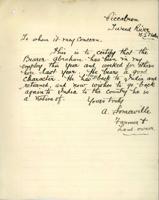 Piccadoon
Tweed River
N.S. Wales
To whom it may concern.
This is to certify that the
Bearer Abraham has been in my
employ this year and worked for
him last year. He bears a good
character. He has been to India and
returned, and now wishes to go back
again to India to the country he is
a native of.
Yours truly
A. Somerville
Farmer &
Land owner